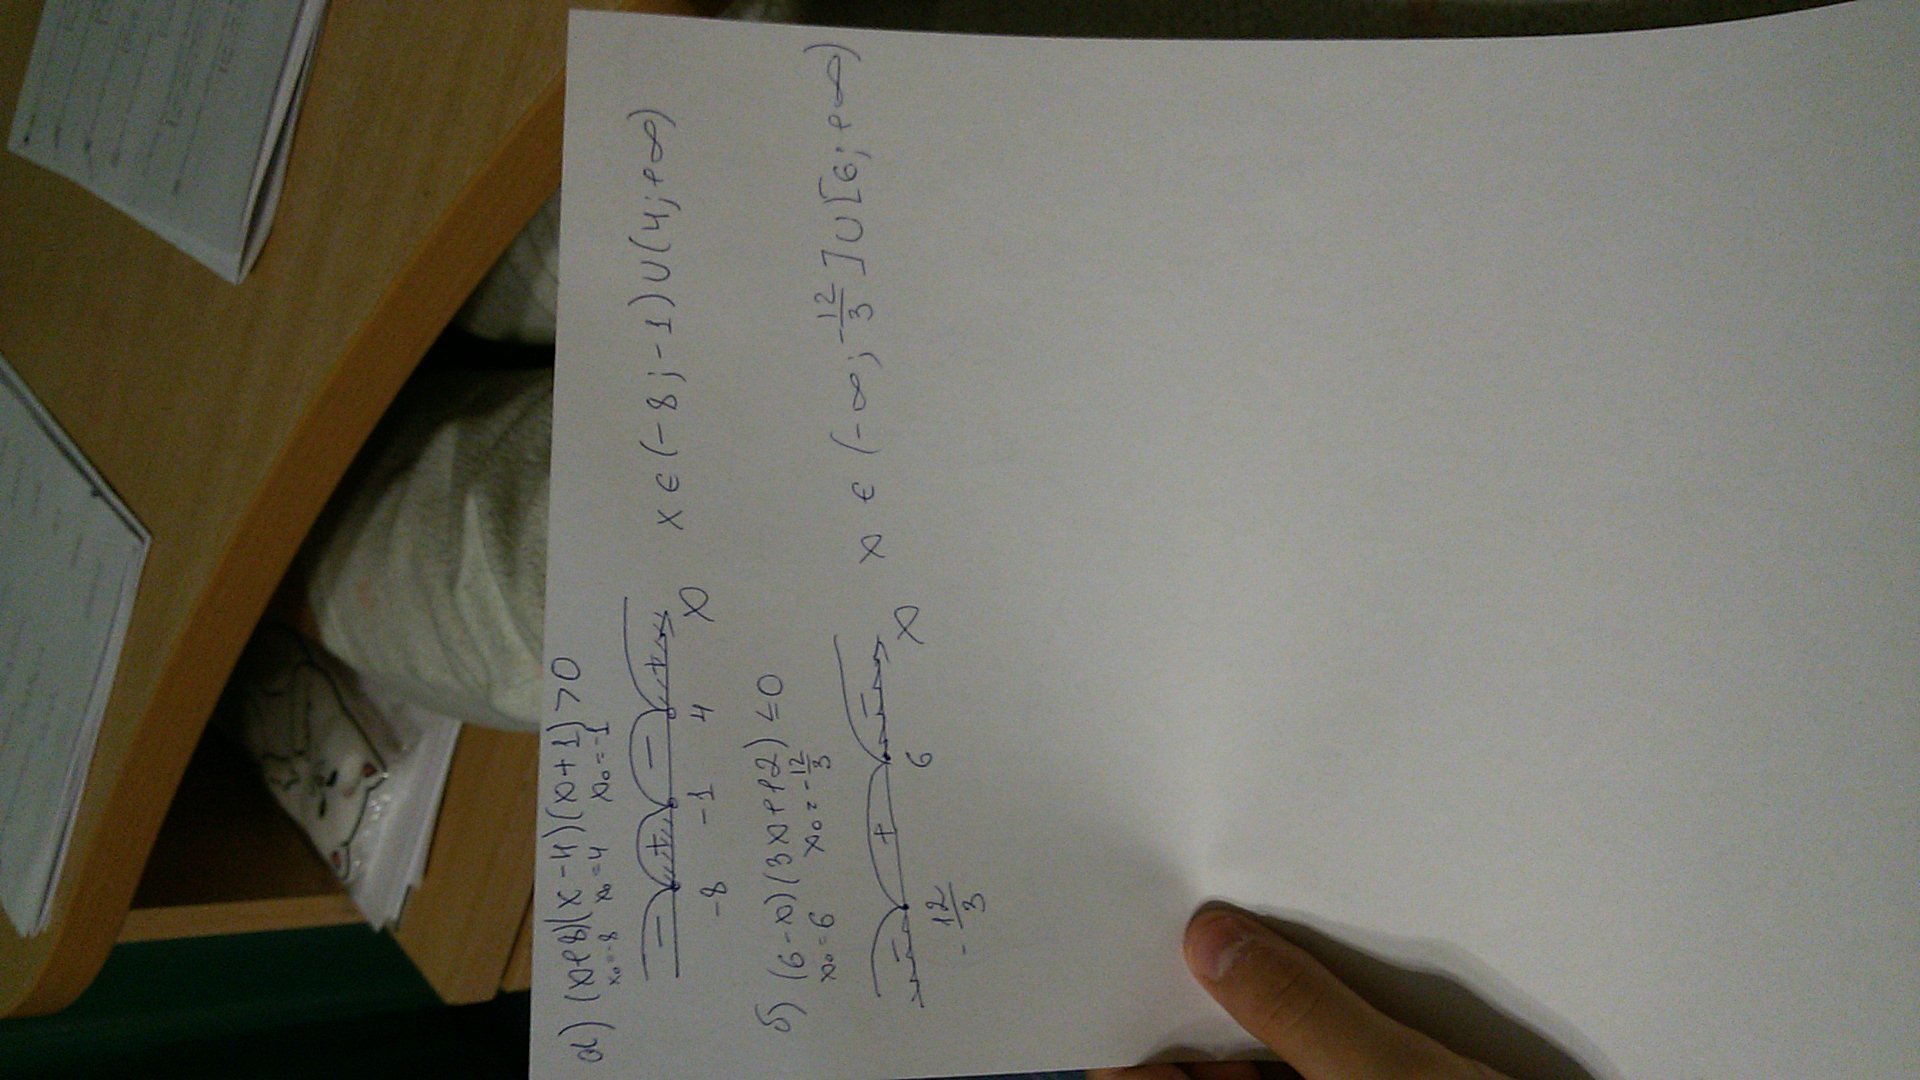 а) (x+8)(x-4)(x+1)>0
x₀=-8 x₀=4 x₀=-1
- + - +
-8 -1 4 x
x ∈ (-8; -1) ∪ (4; +∞)
б) (6-x)(3x+12) ≤0
x₀=6 x₀=-12/3
- + -
-12/3 6 x
x ∈ (-∞; -12/3] ∪ [6; +∞)